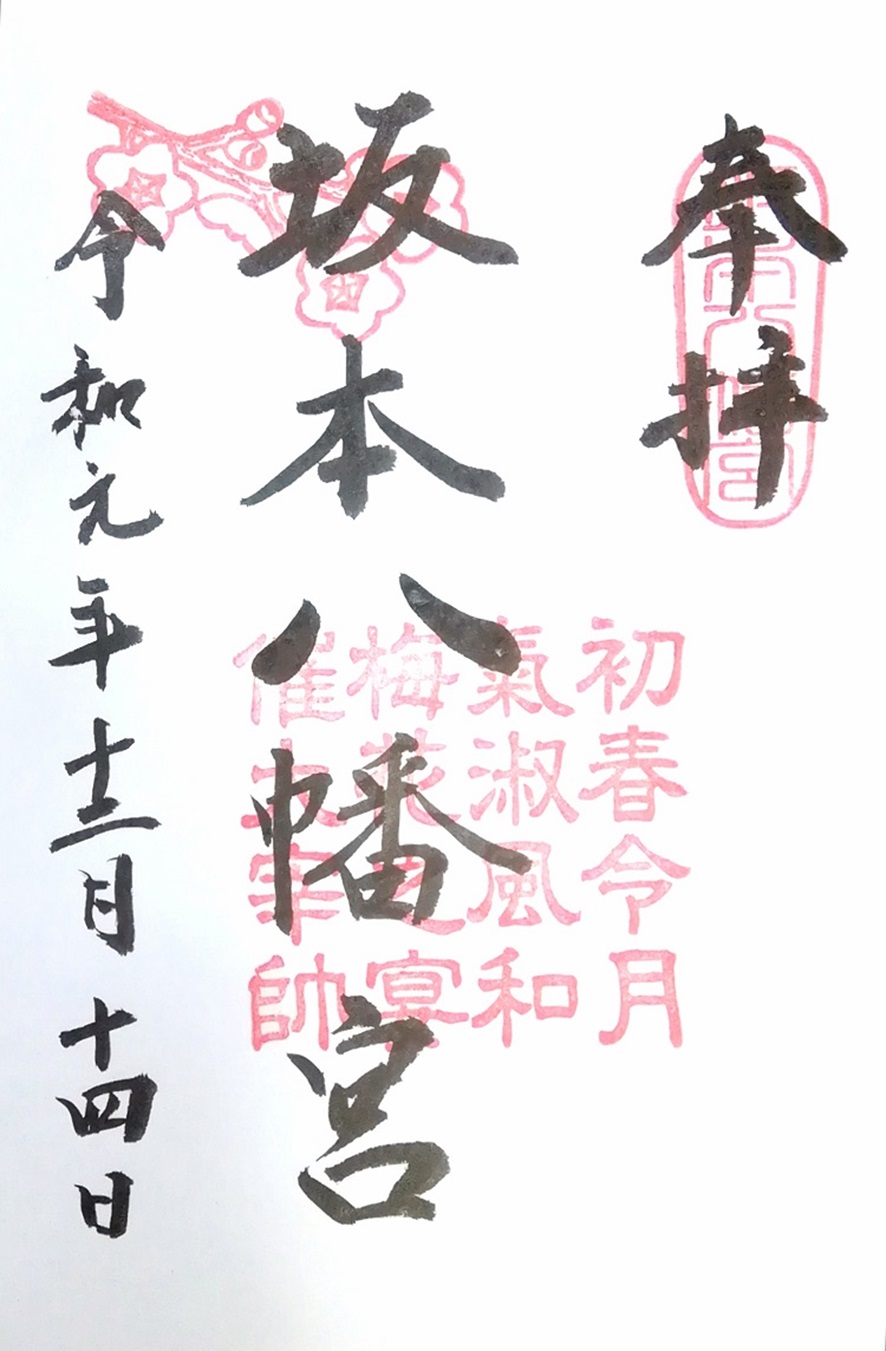 奉拝
坂本八幡宮
令和元年十二月十四日
初春令月
氣淑風和
梅花之宴
催大宰帥